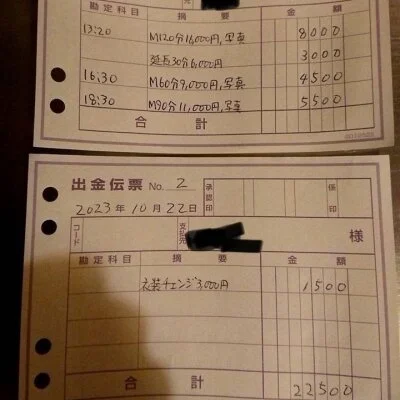 勘定科目 摘要 金額
13:20 M120分16000円,写真 8000
延長30分6,000円 3000
16:30 M60分9,000円,写真 4500
18:30 M90分11,000円,写真 5500
合計
出金伝票 No. 2 承認印 係印
2023年10月22日
コード 支払先 様
勘定科目 摘要 金額
衣装チェンジ3,000円 1500
合計 22500